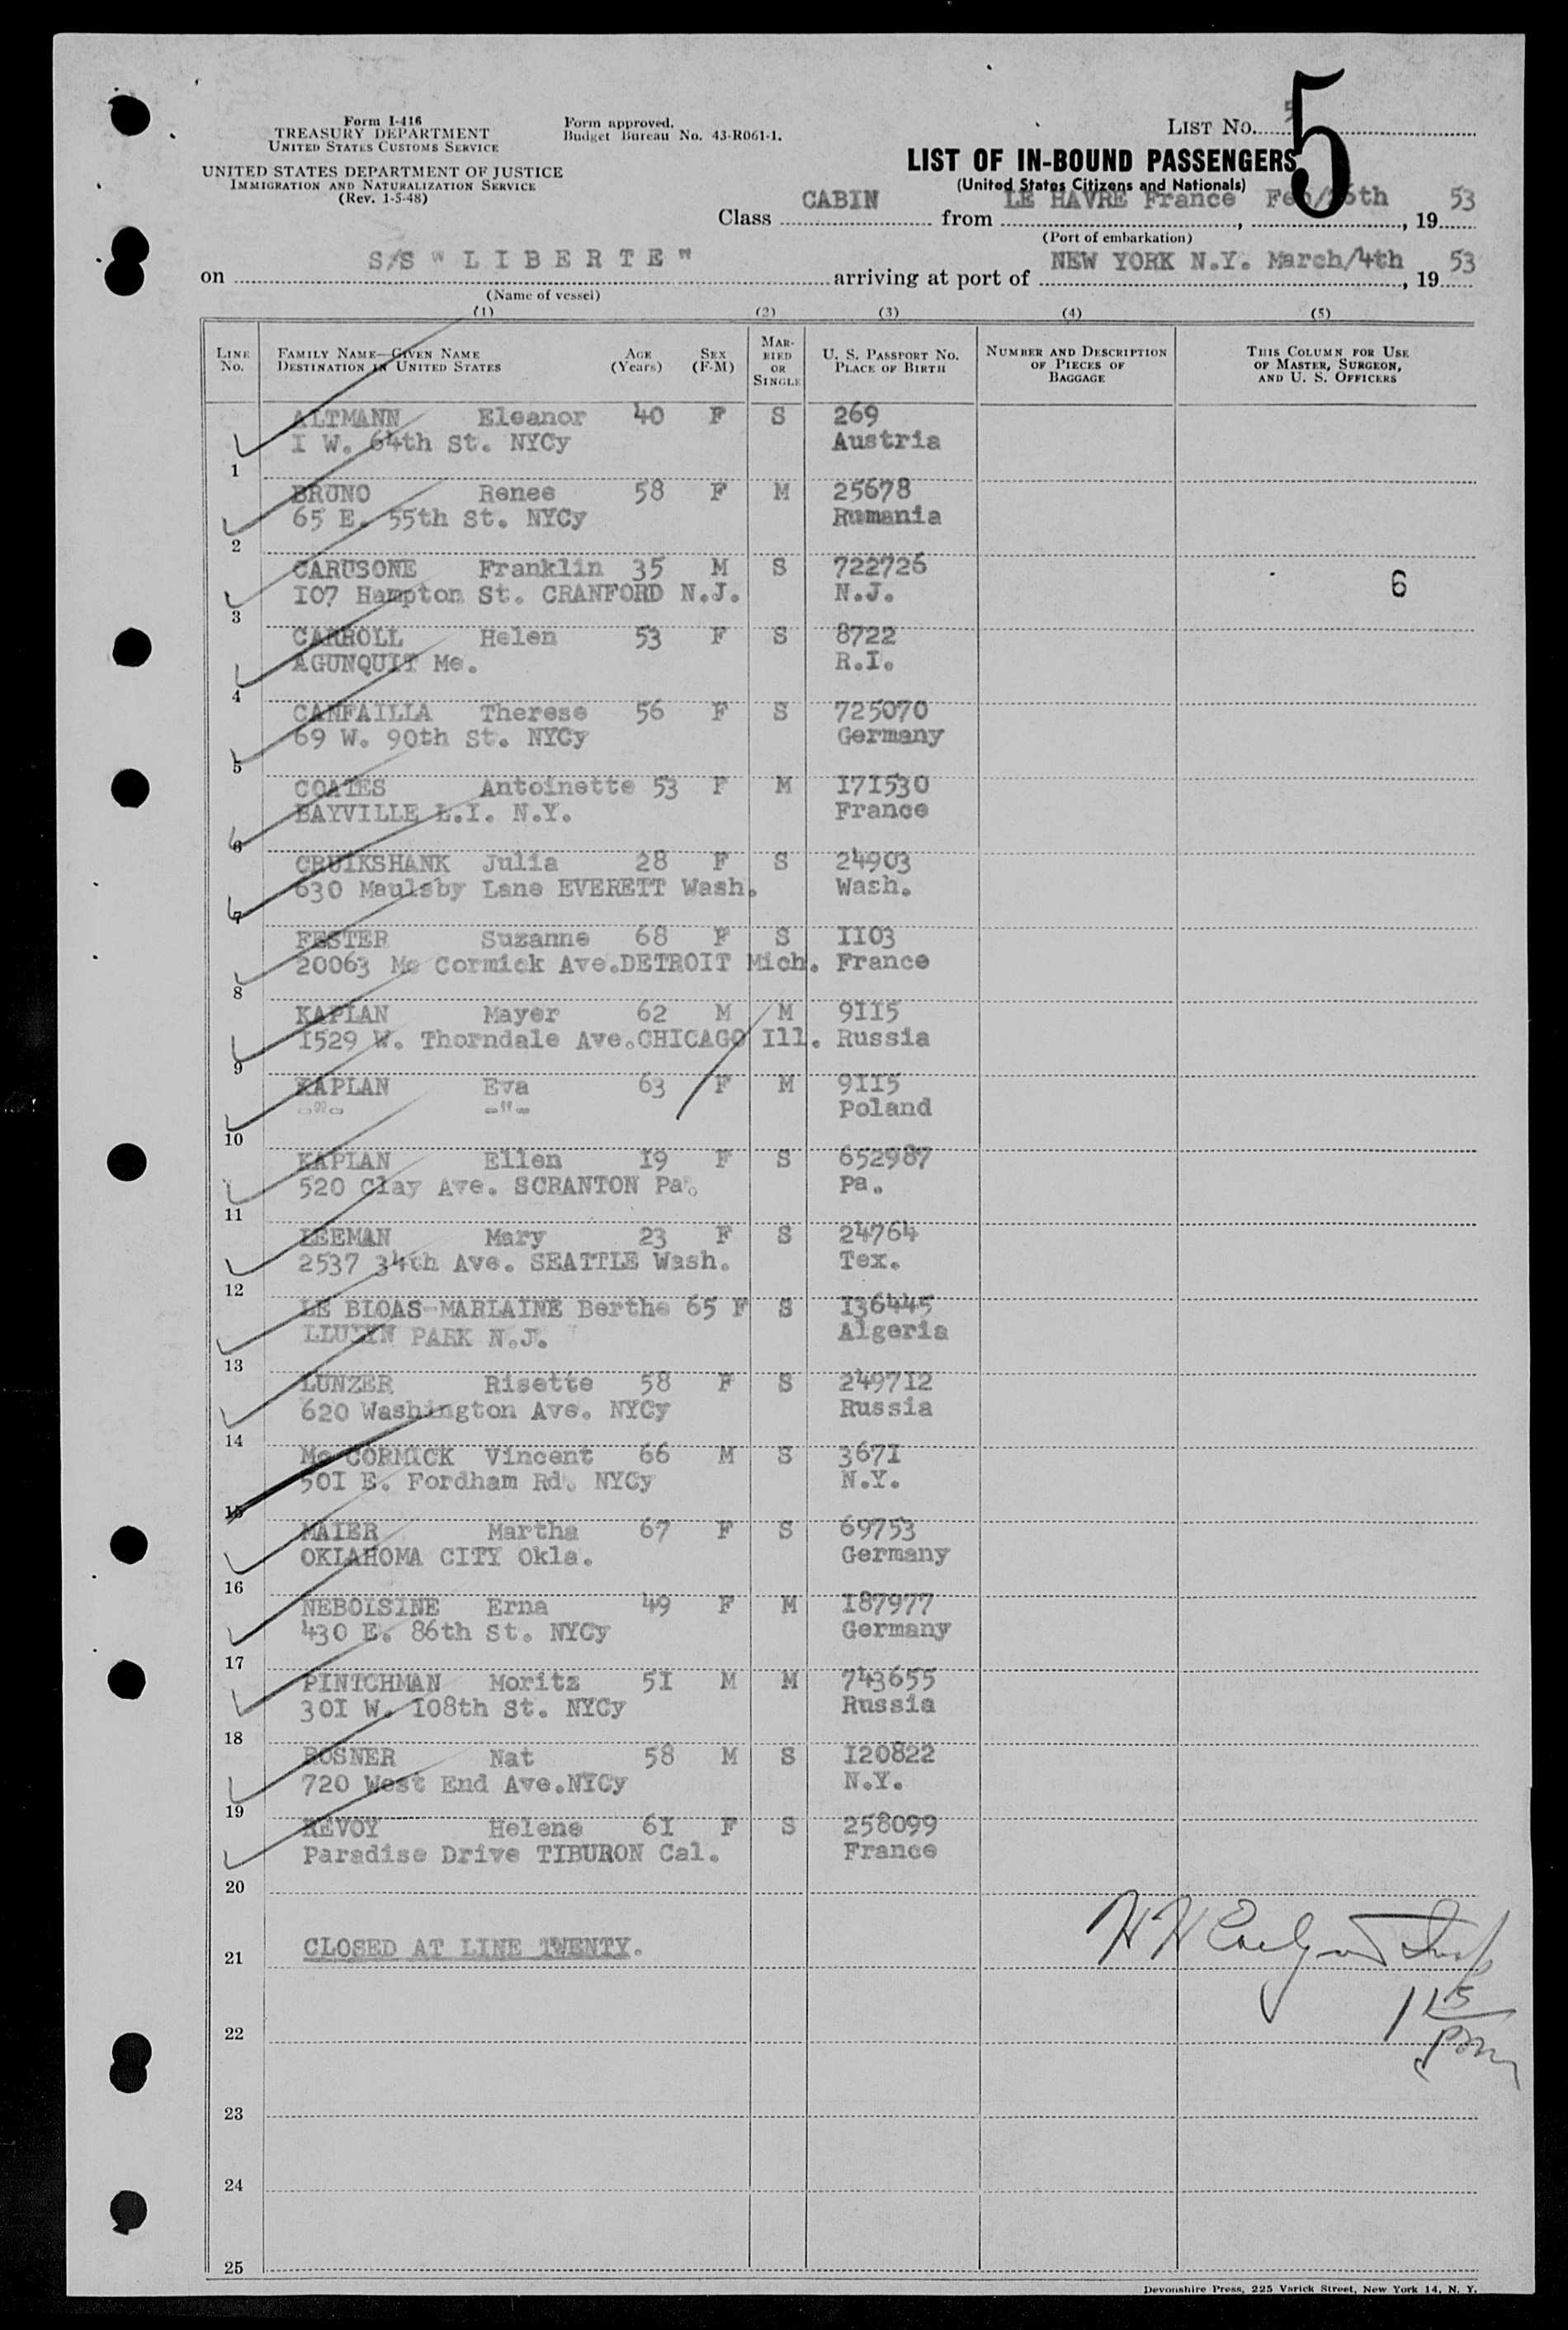 Form I-416
TREASURY DEPARTMENT
UNITED STATES CUSTOMS SERVICE
UNITED STATES DEPARTMENT OF JUSTICE
IMMIGRATION AND NATURALIZATION SERVICE
(Rev. 1-5-48)
Form approved.
Budget Bureau No. 43-R061-1.
LIST NO. 5
5
LIST OF IN-BOUND PASSENGERS
(United States Citizens and Nationals)
Class CABIN from LE HAVRE France, Feb/26th, 1953
(Port of embarkation)
on S/S " L I B E R T E " arriving at port of NEW YORK N.Y. March/4th, 1953
(Name of vessel)
(1) (2) (3) (4) (5)
LINE No. FAMILY NAME—GIVEN NAME DESTINATION IN UNITED STATES AGE (Years) SEX (F-M) MARRIED OR SINGLE U. S. PASSPORT NO. PLACE OF BIRTH NUMBER AND DESCRIPTION OF PIECES OF BAGGAGE THIS COLUMN FOR USE OF MASTER, SURGEON, AND U. S. OFFICERS
ALTMANN Eleanor 40 F S 269
I W. 64th St. NYCy Austria
1
BRUNO Renee 58 F M 25678
65 E. 55th St. NYCy Rumania
2
CARUSONE Franklin 35 M S 722726
I07 Hampton St. CRANFORD N.J. N.J. 6
3
CARROLL Helen 53 F S 8722
AGUNQUIT Me. R.I.
4
CANFAILLA Therese 56 F S 725070
69 W. 90th St. NYCy Germany
5
COATES Antoinette 53 F M I7I530
BAYVILLE L.I. N.Y. France
6
CRUIKSHANK Julia 28 F S 24903
630 Maulsby Lane EVERETT Wash. Wash.
7
FESTER Suzanne 68 F S II03
20063 Mc Cormick Ave.DETROIT Mich. France
8
KAPLAN Mayer 62 M M 9II5
I529 W. Thorndale Ave.CHICAGO Ill. Russia
9
KAPLAN Eva 63 F M 9II5
-"- -"- Poland
10
KAPLAN Ellen I9 F S 652987
520 Clay Ave. SCRANTON Pa. Pa.
11
LEEMAN Mary 23 F S 24764
2537 34th Ave. SEATTLE Wash. Tex.
12
LE BLOAS-MARLAINE Berthe 65 F S I36445
PARK N.J. Algeria
13
LUNZER Risette 58 F S 2497I2
620 Washington Ave. NYCy Russia
14
Mc CORMICK Vincent 66 M S 367I
50I E. Fordham Rd. NYCy N.Y.
15
MAIER Martha 67 F S 69753
OKLAHOMA CITY Okla. Germany
16
NEBOISINE Erna 49 F M I87977
430 E. 86th St. NYCy Germany
17
PINTCHMAN Moritz 5I M M 743655
30I W. I08th St. NYCy Russia
18
ROSNER Nat 58 M S I20822
720 West End Ave.NYCy N.Y.
19
REVOY Helene 6I F S 258099
Paradise Drive TIBURON Cal. France
20
CLOSED AT LINE TWENTY.
21
1 15
pm
22
23
24
25
Devonshire Press, 225 Varick Street, New York 14, N. Y.